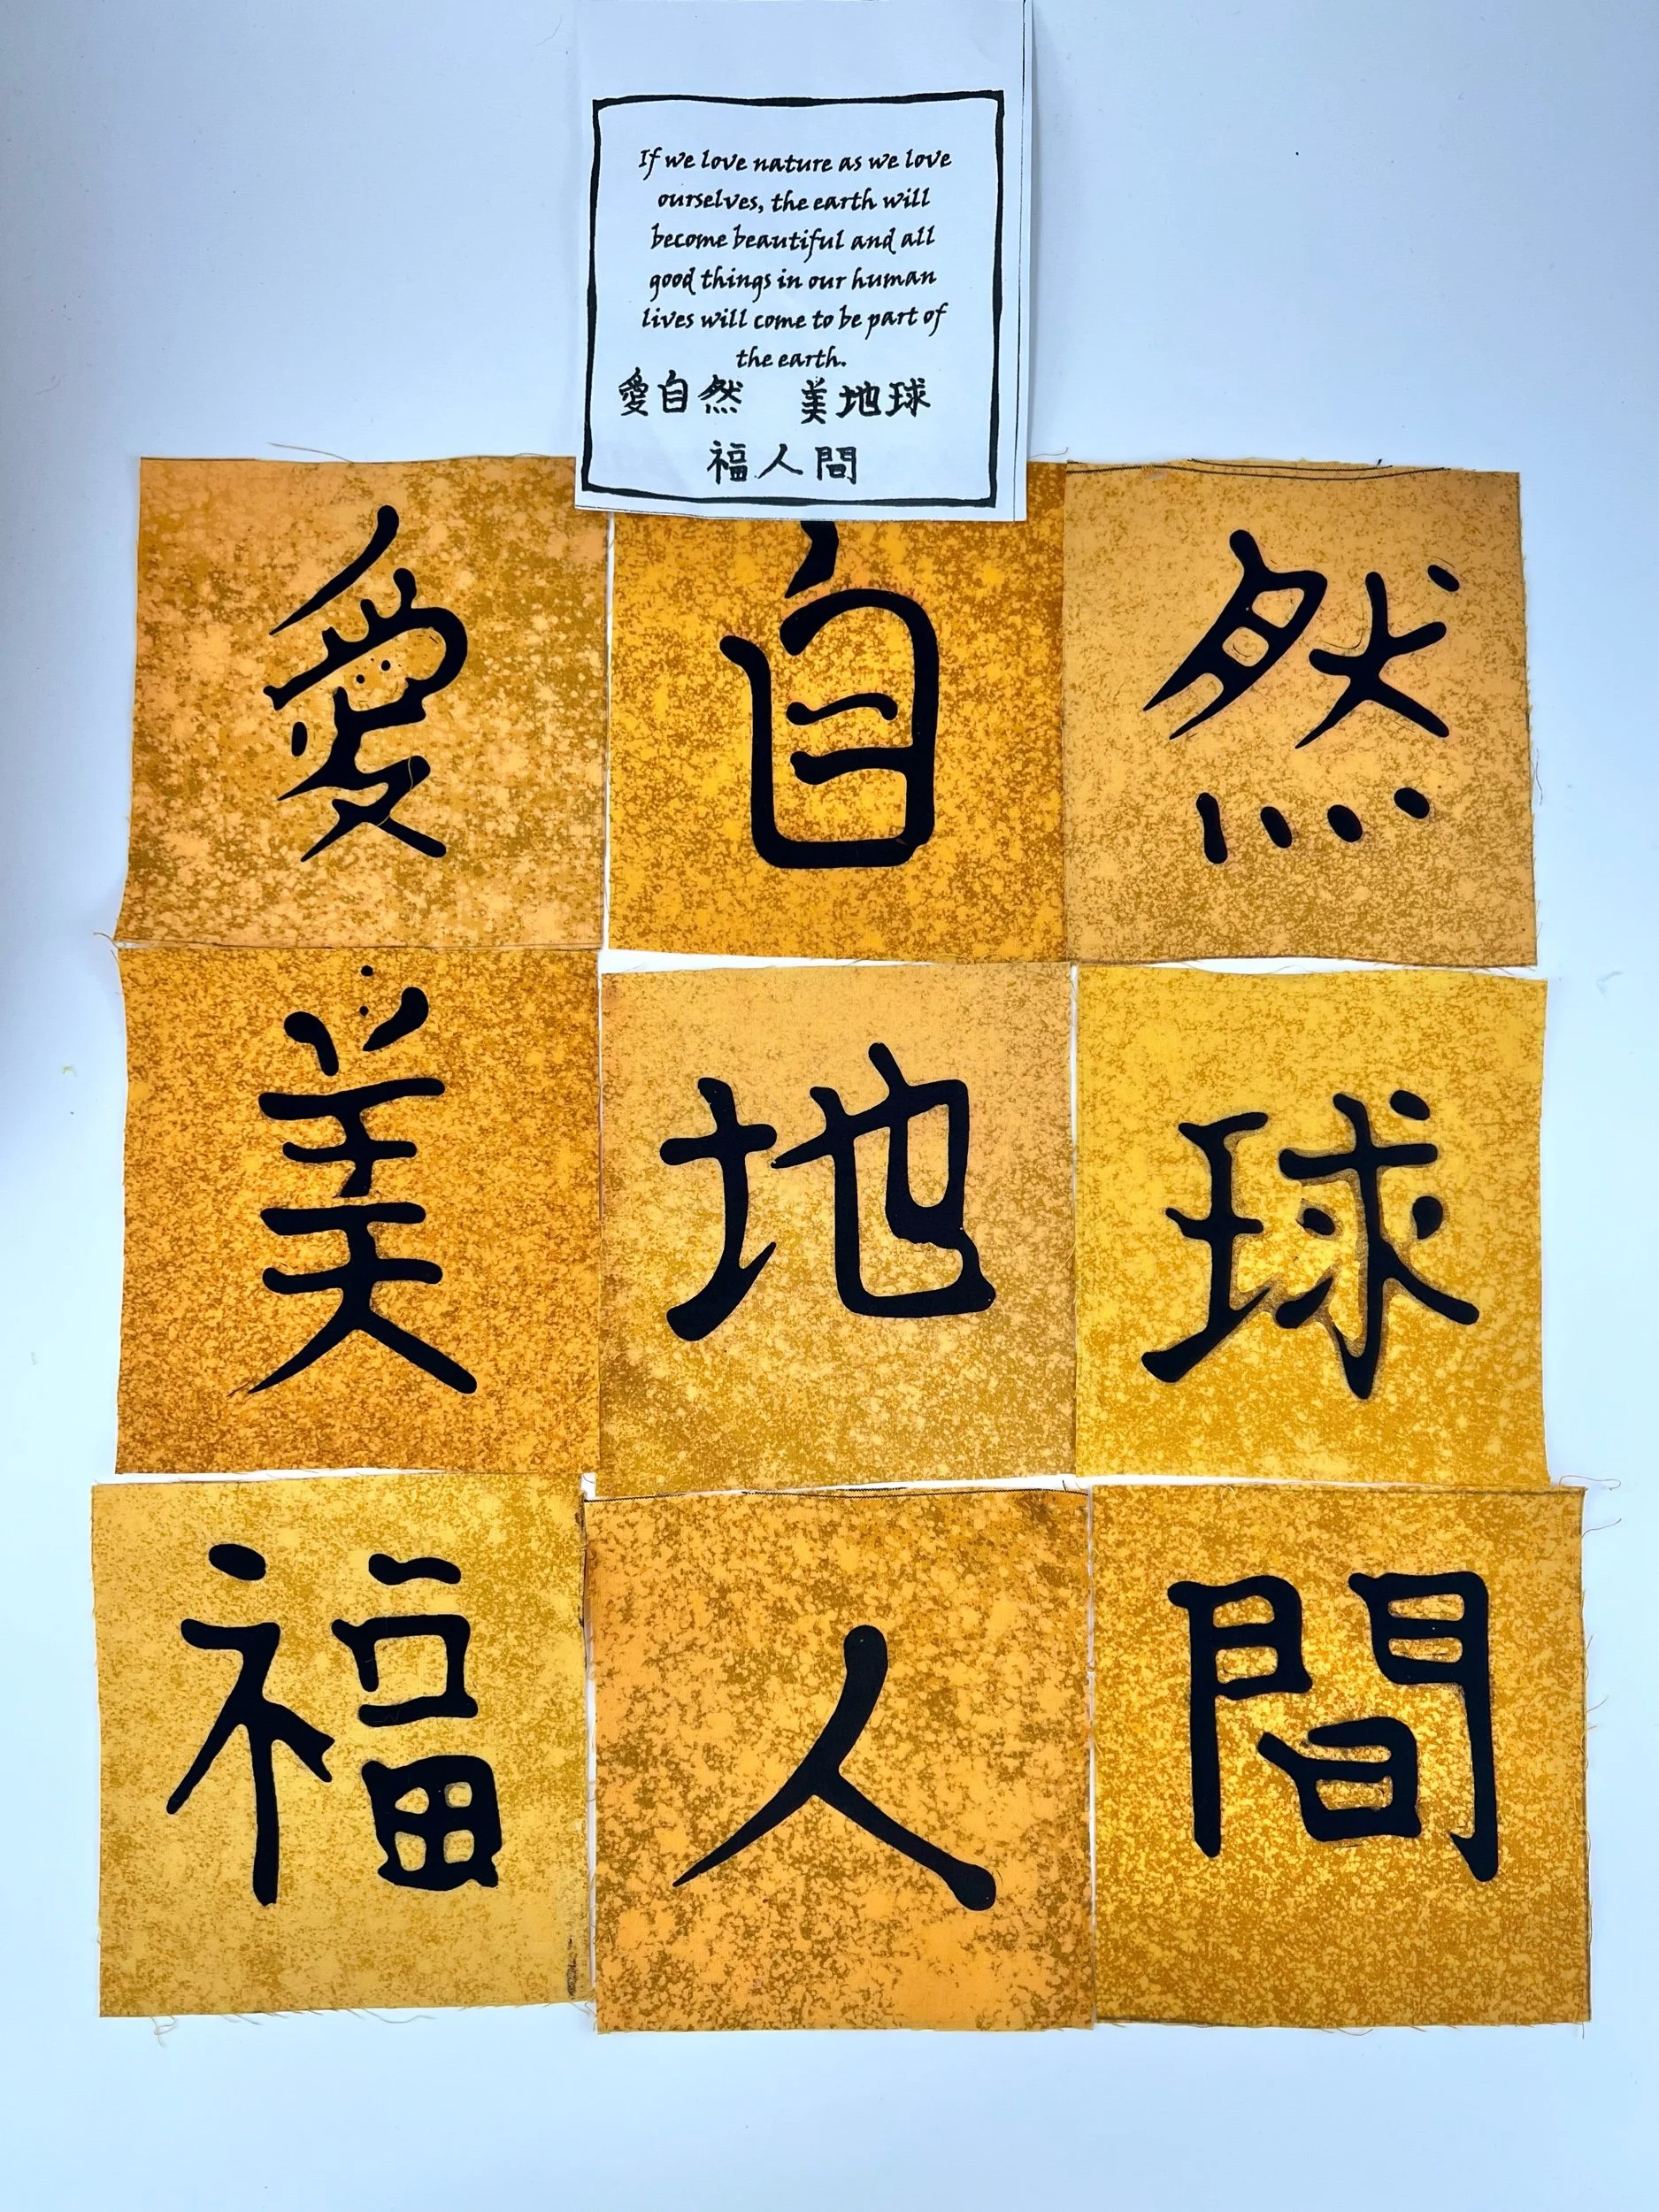 If we love nature as we love
ourselves, the earth will
become beautiful and all
good things in our human
lives will come to be part of
the earth.
愛自然 美地球
福人間
愛 自 然
美 地 球
福 人 間